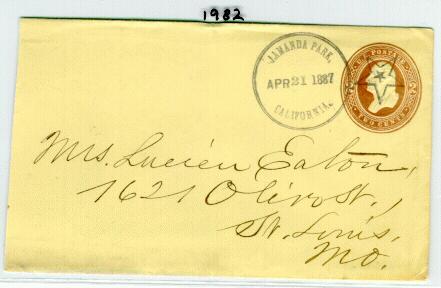 1982
LAMANDA PARK,
APR 21 1887
CALIFORNIA.
U.S. POSTAGE
TWO CENTS
Mrs. Lucien Eaton,
1621 Olive St.,
St. Louis,
Mo.